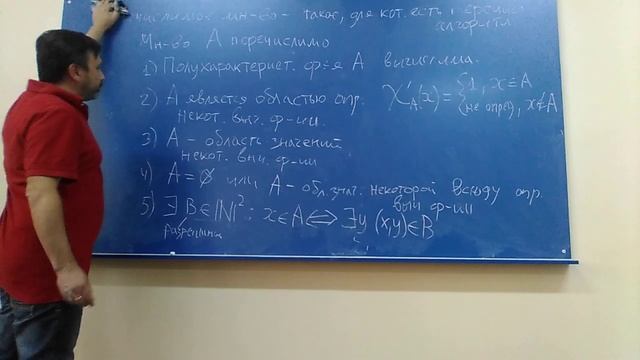 числимое мн-во - такое, для кот. есть
алгоритм
Мн-во A перечислимо
1) Полухарактерист. ф-я A вычислима.
χ'_A(x) = {1, x∈A
{не опред, x∉A
2) A является областью опр.
некот. выч. ф-ии.
3) A - область значений
некот. выч. ф-ии
4) A = ∅ или A - обл. знач. некоторой всюду опр.
выч ф-ии
5) ∃ B ∈ ℕ²: x∈A ⟺ ∃y (x,y)∈B